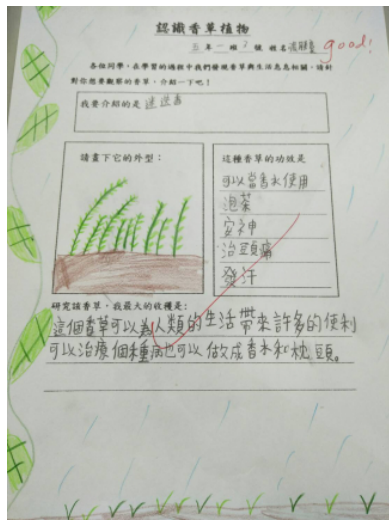 認識香草植物
五年一班2號 姓名 good!
各位同學，在學習的過程中我們發現香草與生活息息相關，請針
對你想要觀察的香草，介紹一下吧！
我要介紹的是 迷迭香
請畫下它的外型：
這種香草的功效是
可以當香水使用
泡茶
安神
治頭痛
發汗
研究該香草，我最大的收穫是：
這個香草可以為人類的生活帶來許多的便利
可以治療個種病也可以做成香水和枕頭。